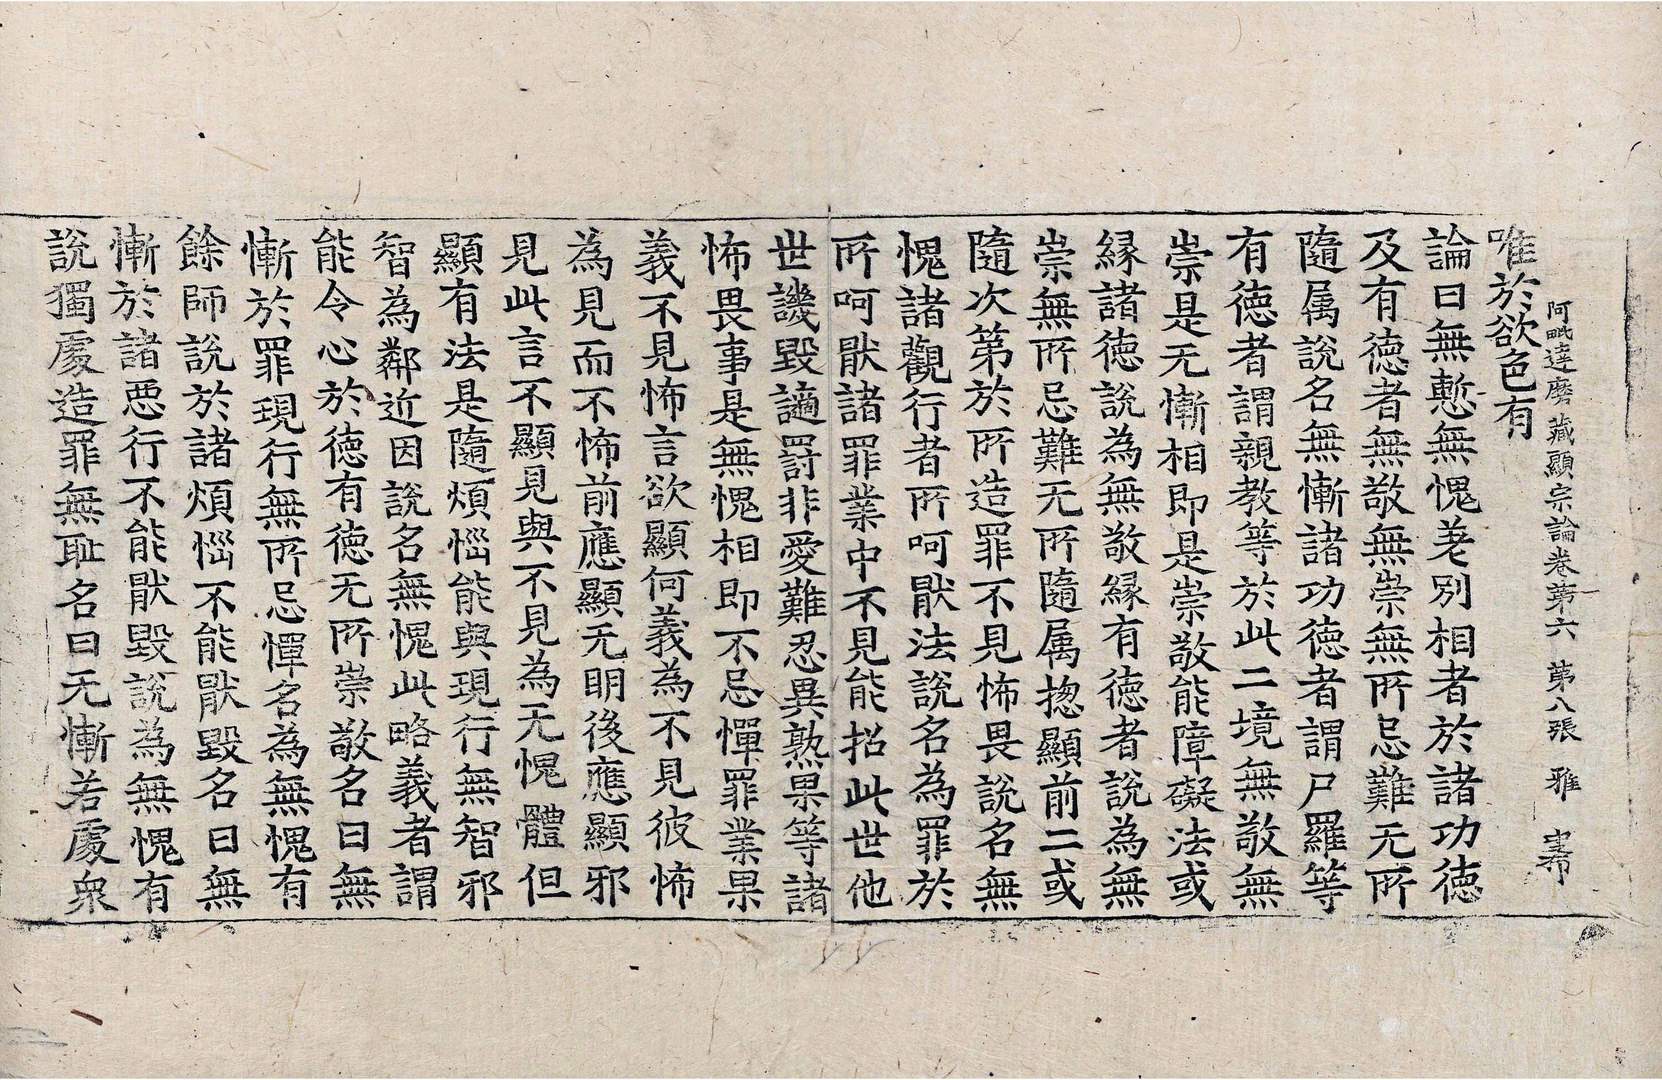 阿毗達磨藏顯宗論卷第六 第八張 雅
唯於欲色有
論曰無慙無愧差別相者於諸功徳
及有徳者無敬無崇無所忌難无所
隨属說名無慚諸功徳者謂尸羅等
有徳者謂親教等於此二境無敬無
崇是无慚相即是崇敬能障礙法或
縁諸徳說為無敬縁有徳者說為無
崇無所忌難无所隨属揔顯前二或
隨次第於所造罪不見怖畏說名無
愧諸觀行者所呵猒法說名為罪於
所呵猒諸罪業中不見能招此世他
世譏毀讁罸非愛難忍異熟果等諸
怖畏事是無愧相即不忌憚罪業果
義不見怖言欲顯何義為不見彼怖
為見而不怖前應顯无明後應顯邪
見此言不顯見與不見為无愧體但
顯有法是隨煩惱能與現行無智邪
智為鄰近因說名無愧此略義者謂
能令心於徳有徳无所崇敬名曰無
慚於罪現行無所忌憚名為無愧有
餘師說於諸煩惱不能猒毀名曰無
慚於諸惡行不能猒毀說為無愧有
說獨處造罪無耻名曰无慚若處衆